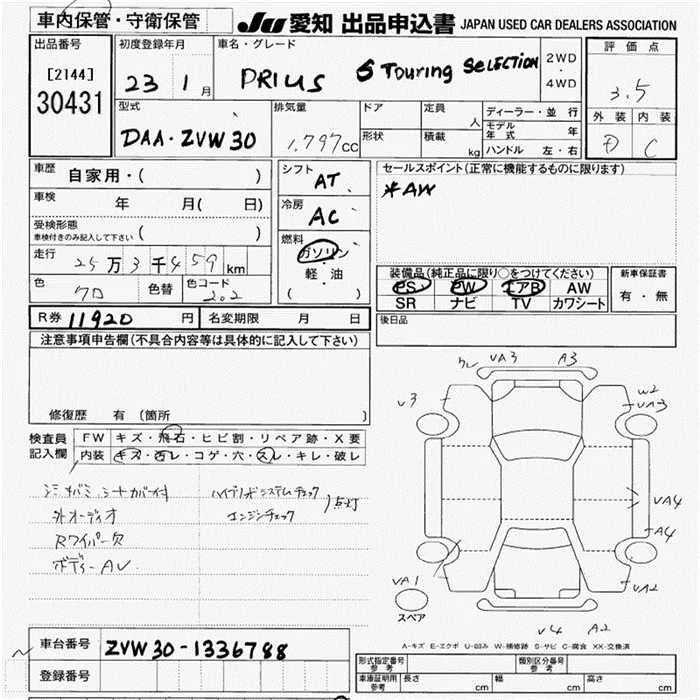 車内保管・守衛保管
JU 愛知 出品申込書 JAPAN USED CAR DEALERS ASSOCIATION
出品番号
[2144]
30431
初度登録年月
23 1 月
車名・グレード
PRIUS S Touring SELECTION
2WD
・
4WD
評価点
3.5
外装 内装
D C
型式
DAA-ZVW30
排気量
1,797cc
ドア
形状
定員
人
積載
kg
ディーラー・並行
モデル年式 年
ハンドル 左・右
車歴 自家用・( )
車検 年 月( 日)
受検形態
車検付きのみ記入して下さい ( )
走行
25万3千459km
色 クロ 色替 色コード 202
シフト
AT
冷房
AC
燃料
ガソリン
・
軽・油
( )
セールスポイント(正常に機能するものに限ります)
*AW
装備品(純正品に限り○をつけてください)
PS PW エアB AW
SR ナビ TV カワシート
新車保証書
有・無
R券 11920 円 名変期限 月 日
後日品
注意事項申告欄(不具合内容等は具体的に記入して下さい)
修復歴 有(箇所 )
検査員記入欄
FW キズ・飛石・ヒビ割・リペア跡・X要
内装 キズ・汚レ・コゲ・穴・スレ・キレ・破レ
シミ
シートカバー付
外オーディオ
Rワイパー欠
ボディーAU
ハイブリッドシステムチェック
エンジンチェック
点灯
VA3 A3
V3
W2
VA3
VA4
A4
VA2
VA1
スペア
V4 A2
A-キズ E-エクボ U-凹み W-補修跡 S-サビ C-腐食 XX-交換済
車台番号 ZVW30-1336788
登録番号
形式指定番号
参考
類別区分番号
参考
車庫証明用
参考
長さ cm 幅 cm 高さ cm